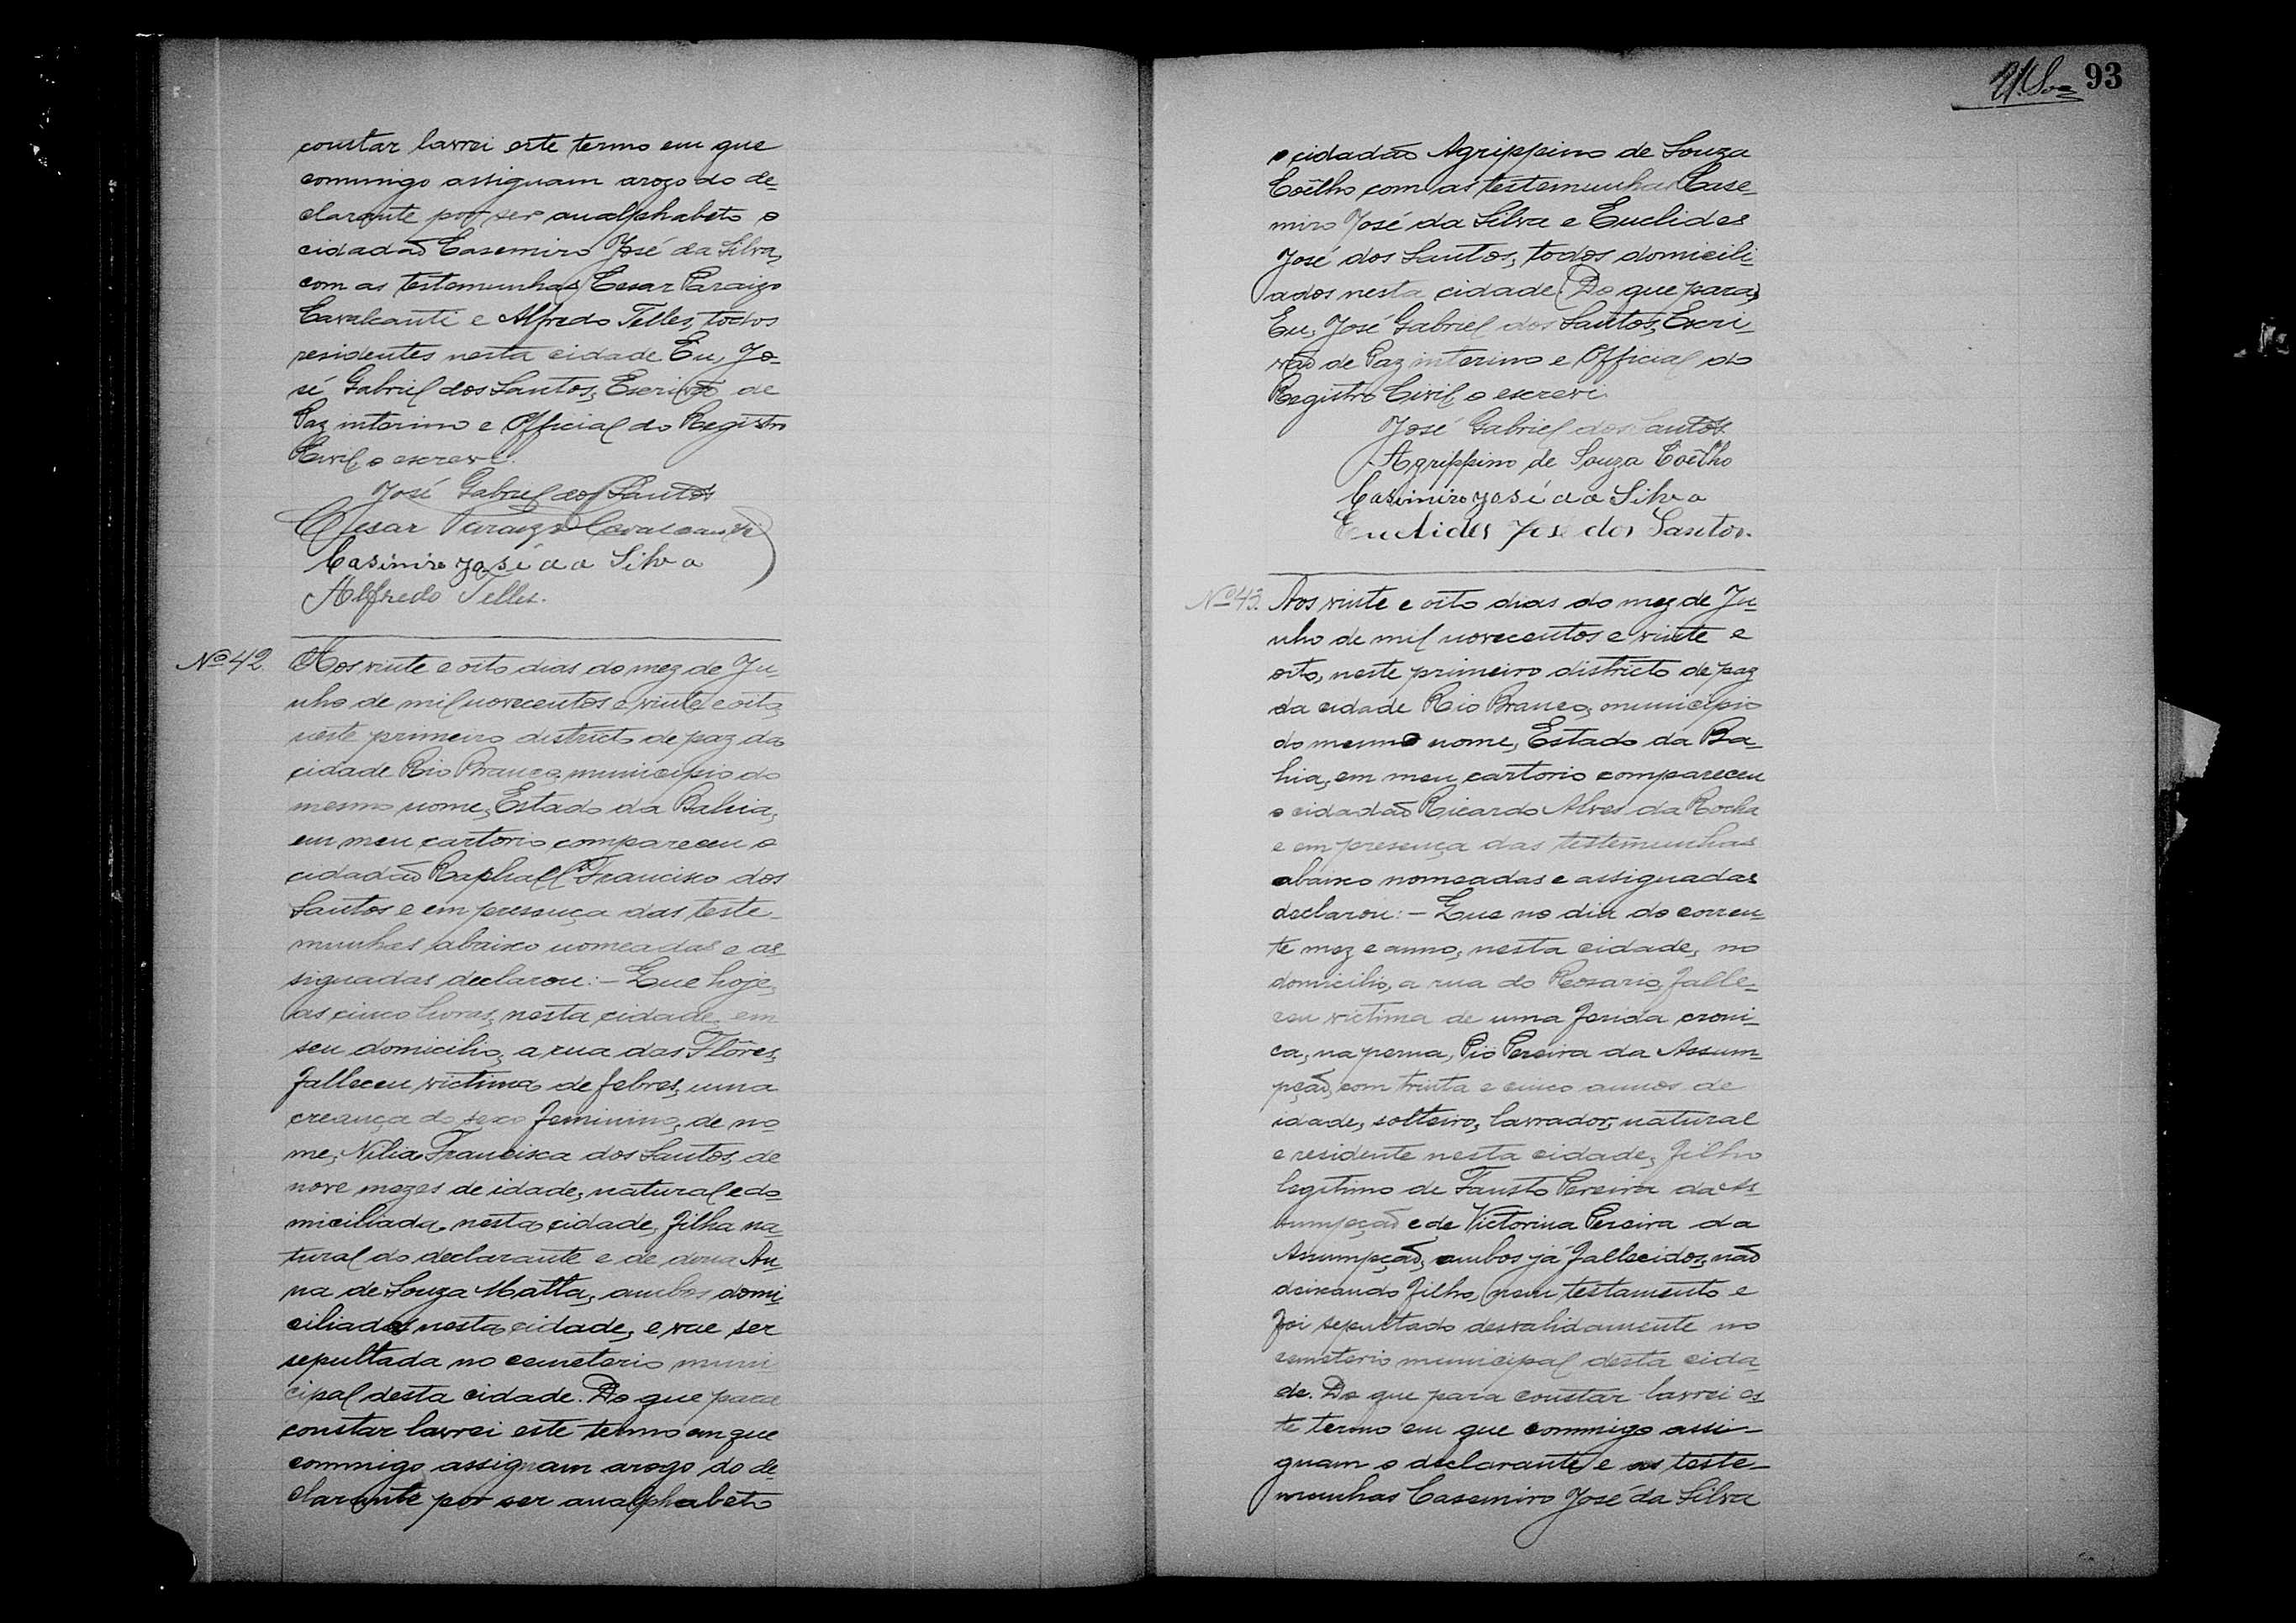 constar lavrei este termo em que
commigo assignam arogo do de-
clarante por ser analphabeto o
cidadão Casemiro José da Silva,
com as testemunhas Cesar Paraizo
Cavalcanti e Alfredo Telles, todos
residentes nesta cidade Eu, Jo-
sé Gabriel dos Santos, Escrivão de
Paz interino e Official do Registro
Civil, o escrevi.
José Gabriel dos Santos
Cesar Paraizo Cavalcanti
Casimiro José da Silva
Alfredo Telles.
Nº 42. Aos vinte e oito dias do mez de Ju-
nho de mil novecentos e vinte e oito,
neste primeiro districto de paz da
cidade Rio Branco, municipio do
mesmo nome, Estado da Bahia,
em meu cartorio compareceu o
cidadão Raphael Francisco dos
Santos e em presença das teste-
munhas abaixo nomeadas e as-
signadas declarou: - Que hoje,
as cinco horas, nesta cidade, em
seu domicilio, a rua das Flôres,
falleceu victima de febres, uma
creança do sexo feminino, de no-
me, Nilia Francisca dos Santos, de
nove mezes de idade, natural e do-
miciliada nesta cidade, filha na-
tural do declarante e de dona An-
na de Souza Matta, ambos domi-
ciliados nesta cidade, e vae ser
sepultada no cemeterio muni-
cipal desta cidade. Do que para
constar lavrei este termo em que
commigo assignam arogo do de-
clarante por ser analphabeto
93
o cidadão Agrippino de Souza
Coêlho com as testemunhas Case-
miro José da Silva e Euclides
José dos Santos, todos domicili-
ados nesta cidade (Do que para)
Eu, José Gabriel dos Santos, Escri-
vão de Paz interino e Official do
Registro Civil, o escrevi.
José Gabriel dos Santos.
Agrippino de Souza Coêlho
Casimiro José da Silva
Euclides José dos Santos.
Nº 43. Aos vinte e oito dias do mez de Ju-
nho de mil novecentos e vinte e
oito, neste primeiro districto de paz
da cidade Rio Branco, municipio
do mesmo nome, Estado da Ba-
hia, em meu cartorio compareceu
o cidadão Ricardo Alves da Rocha
e em presença das testemunhas
abaixo nomeadas e assignadas
declarou: - Que no dia do corren-
te mez e anno, nesta cidade, no
domicilio, a rua do Rosario, falle-
ceu victima de uma ferida croni-
ca, na perna, Pio Pereira da Assum-
pção, com trinta e cinco annos de
idade, solteiro, lavrador, natural
e residente nesta cidade, filho
legitimo de Fausto Pereira da As-
sumpção e de Victorina Pereira da
Assumpção, ambos já fallecidos, não
deixando filho, nem testamento e
foi sepultado desvalidamente no
cemeterio municipal desta cida-
de. Do que para constar lavrei es-
te termo em que commigo assi-
gnam o declarante e as teste-
munhas Casemiro José da Silva